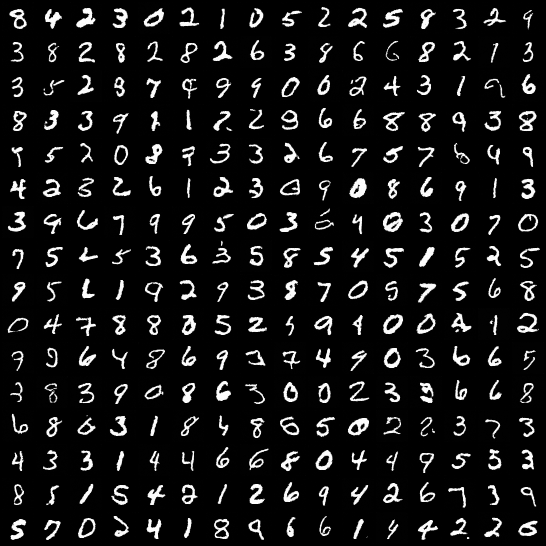 8 4 2 3 0 2 1 0 5 2 2 5 8 3 2 9
3 8 2 8 2 8 2 6 3 8 6 6 8 2 1 3
3 5 2 8 7 9 9 9 0 0 2 4 3 1 9 6
8 3 3 9 1 1 2 2 9 6 6 8 8 9 3 8
9 5 2 0 8 7 3 3 2 6 7 5 7 6 4 9
4 2 3 2 6 1 2 3 0 9 0 8 6 9 1 3
3 9 6 7 9 9 5 0 3 6 4 0 3 0 7 0
7 5 2 5 3 6 3 5 8 5 4 5 1 5 2 5
9 5 6 1 9 2 9 3 8 7 0 9 7 5 6 8
0 4 7 8 8 3 5 2 9 1 0 0 2 1 2
9 9 6 4 8 6 9 3 7 4 9 0 3 6 6 5
3 8 3 9 0 8 6 3 0 0 2 3 3 6 6 8
6 8 0 3 1 8 4 8 5 5 0 2 2 3 7 3
4 3 3 1 4 4 6 6 8 0 4 4 9 5 5 2
8 5 1 5 4 2 1 2 6 9 4 2 6 7 3 9
5 7 0 2 4 1 8 9 6 6 1 4 4 2 2 6